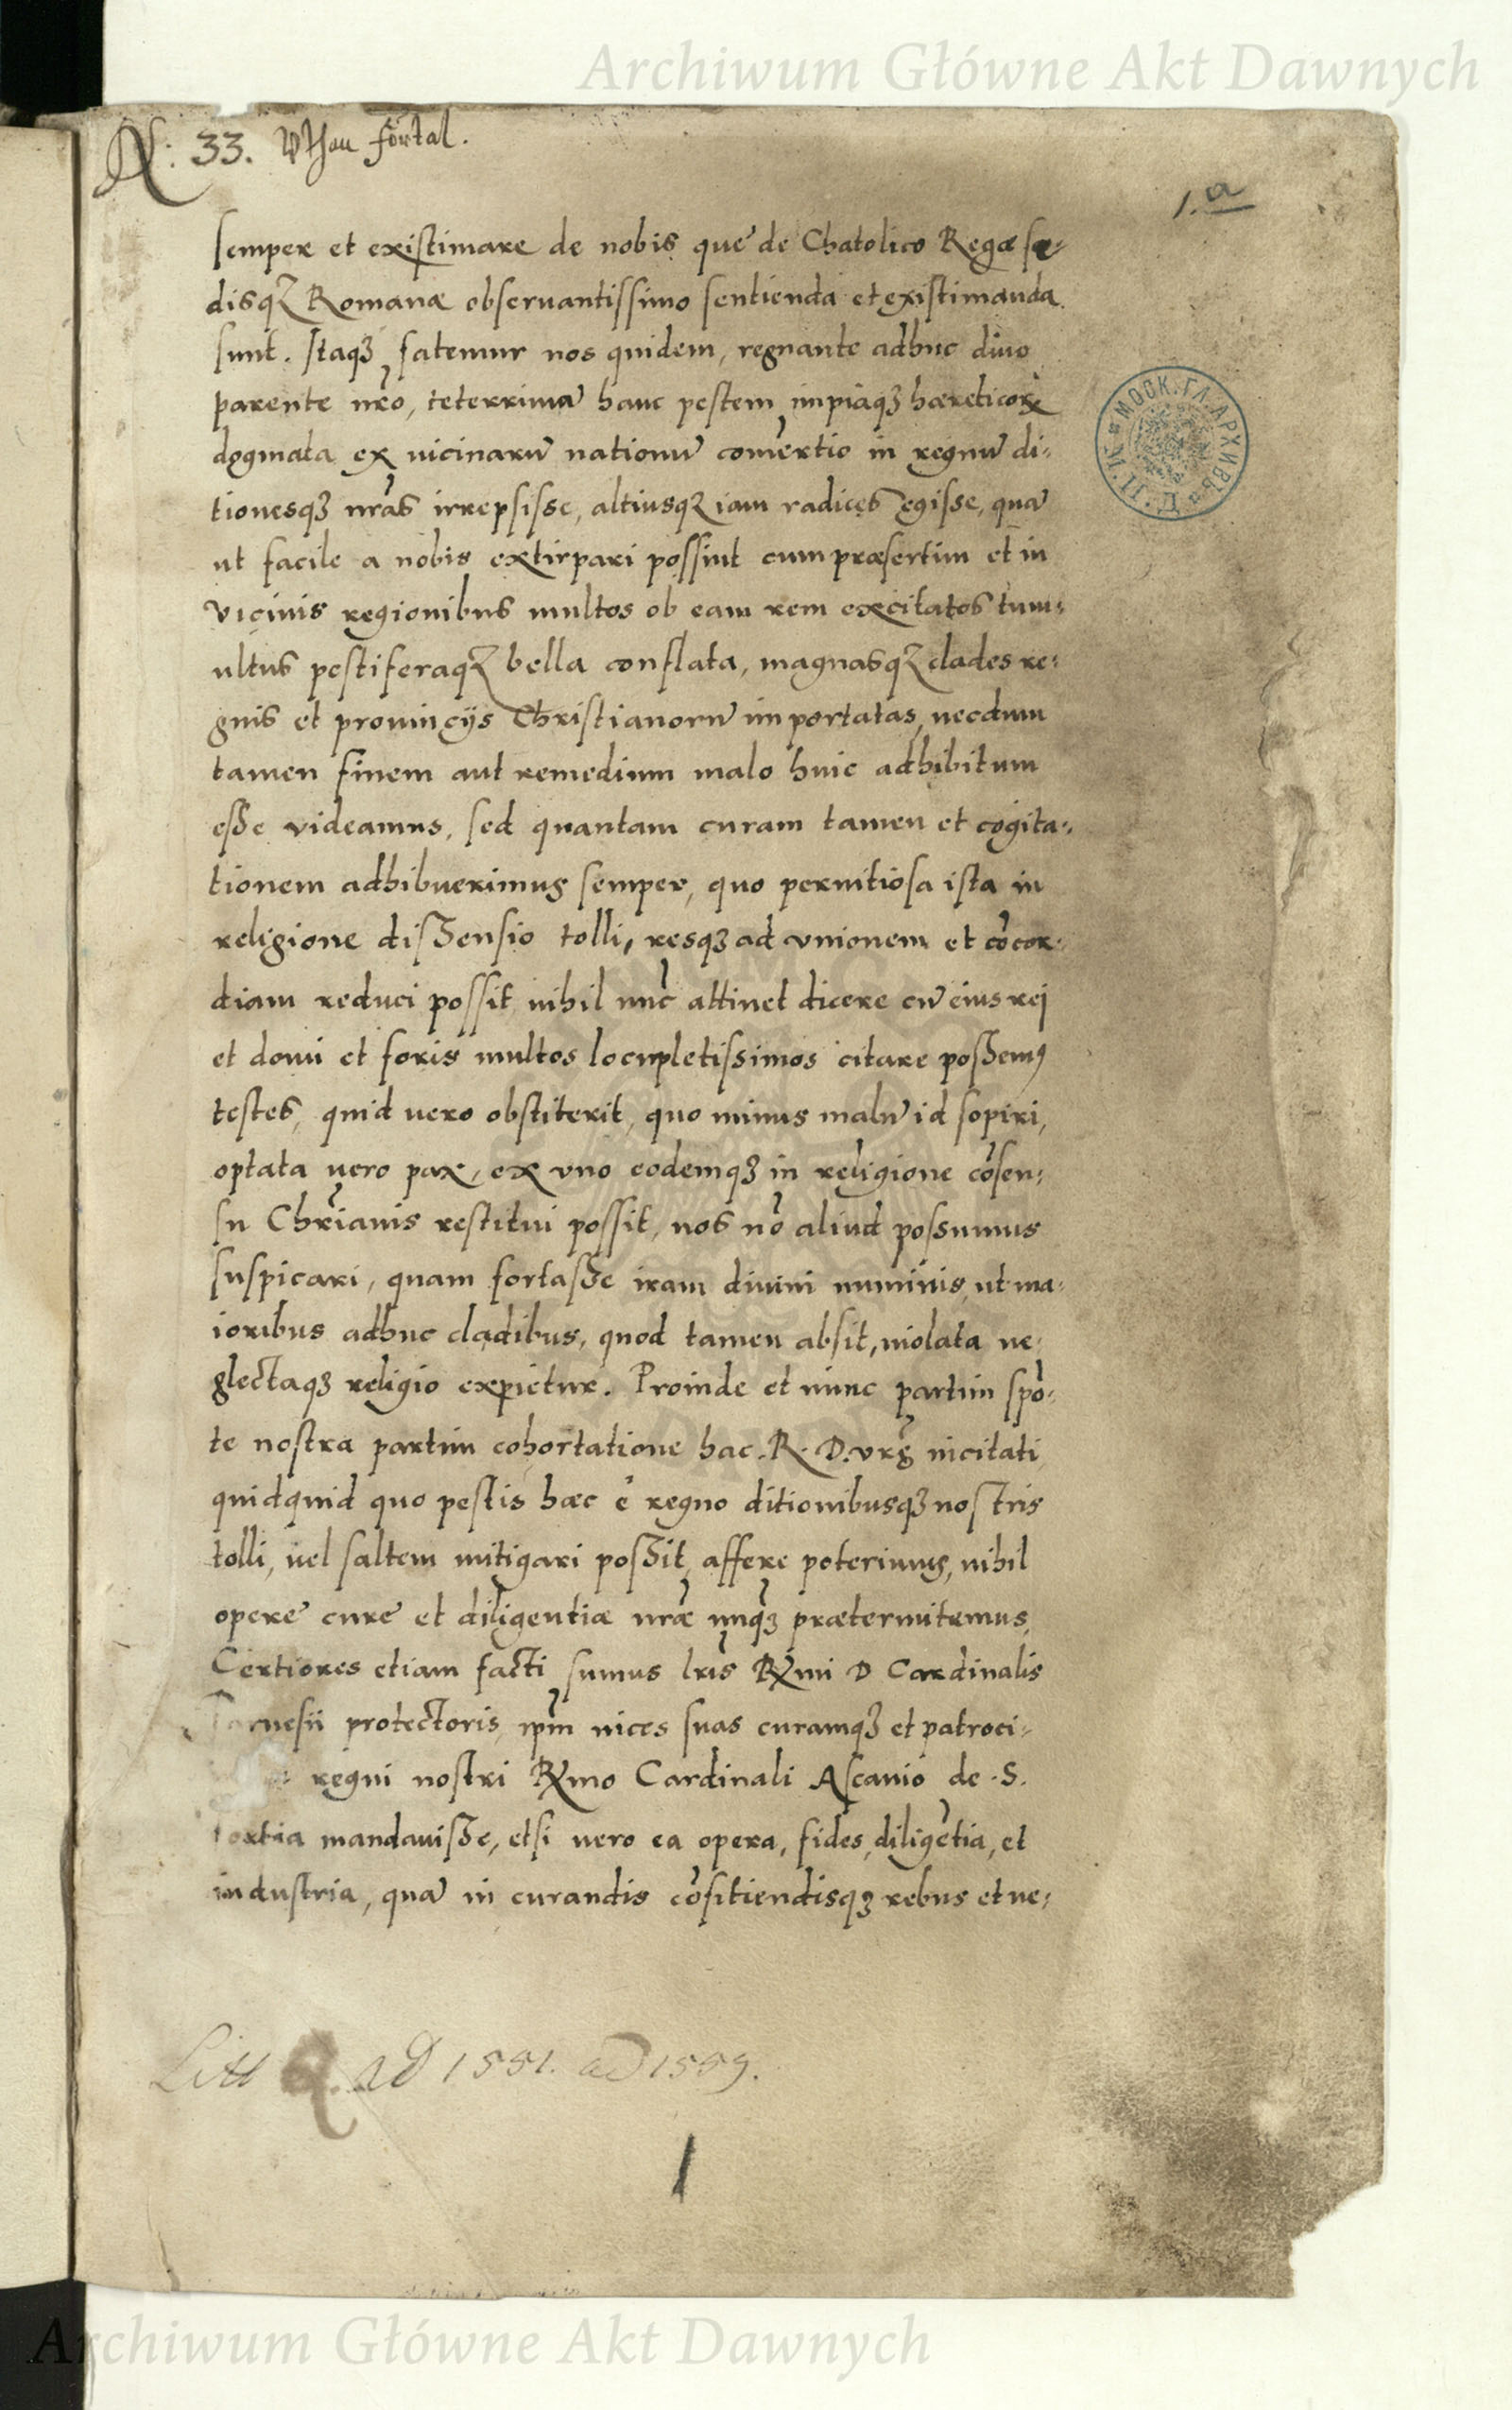 Archiwum Główne Akt Dawnych
N: 33.
1.a
semper et existimare de nobis que de Chatolico Rege se-
disq3 Romanæ obseruantissimo sentienda et existimanda
sunt. Itaq3 fatemur nos quidem, regnante adhuc diuo
parente nr̃o, teterrimã hanc pestem impiaq3 hæreticorꝝ
dogmata ex uicinarũ nationũ com̃ertio in regnũ di-
tionesq3 nr̃as irrepsisse, altiusq3 iam radices egisse, quã
ut facile a nobis extirpari possint cum præsertim et in
vicinis regionibus multos ob eam rem excitatos tum-
ultus pestiferaq3 bella conflata, magnasq3 clades re-
gnis et prouincijs Christianorũ importatas, necdum
tamen finem aut remedium malo huic adhibitum
esse videamus, sed quantam curam tamen et cogita-
tionem adhibuerimus semper, quo pernitiosa ista in
religione dissensio tolli, resq3 ad vnionem et cõcor-
diam reduci possit nihil nũc attinet dicere cũ eius rej
et domi et foris multos locupletissimos citare possemꝰ
testes, quid uero obstiterit, quo minus malũ id sopiri,
optata uero pax, ex vno eodemq3 in religione cõsen-
su Chr̃ianis restitui possit, nos nõ aliud possumus
suspicari, quam fortasse iram diuini numinis, ut ma-
ioribus adhuc cladibus, quod tamen absit, uiolata ne-
glectaq3 religio expietur. Proinde et nunc partim spõ-
te nostra partim cohortatione hac R. D. vr̃ę incitati
quidquid quo pestis hæc e regno ditionibusq3 nostris
tolli, uel saltem mitigari possit, affere poterimus, nihil
operę curę et diligentiæ nr̃æ unq̃3 prætermitemus,
Certiores etiam facti sumus lr̃is Rx̃mi D Cardinalis
Farnesii protectoris, ip̃m uices suas curamq3 et patroci-
regni nostri Rx̃mo Cardinali Ascanio de S.
fortia mandauisse, etsi uero ea opera, fides, diligẽtia, et
industria, quã in curandis cõsitiendisq3 rebus et ne-
Litt Q. ad 1551. ad 1559.
1
МОСК. ГЛ. АРХИВЪ
Archiwum Główne Akt Dawnych